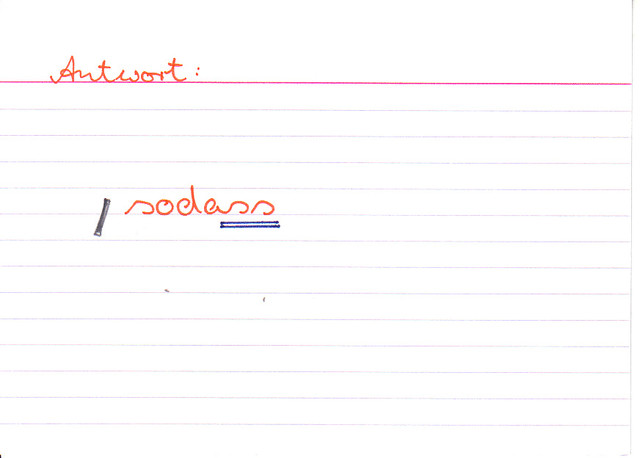 Antwort:
/ sodass